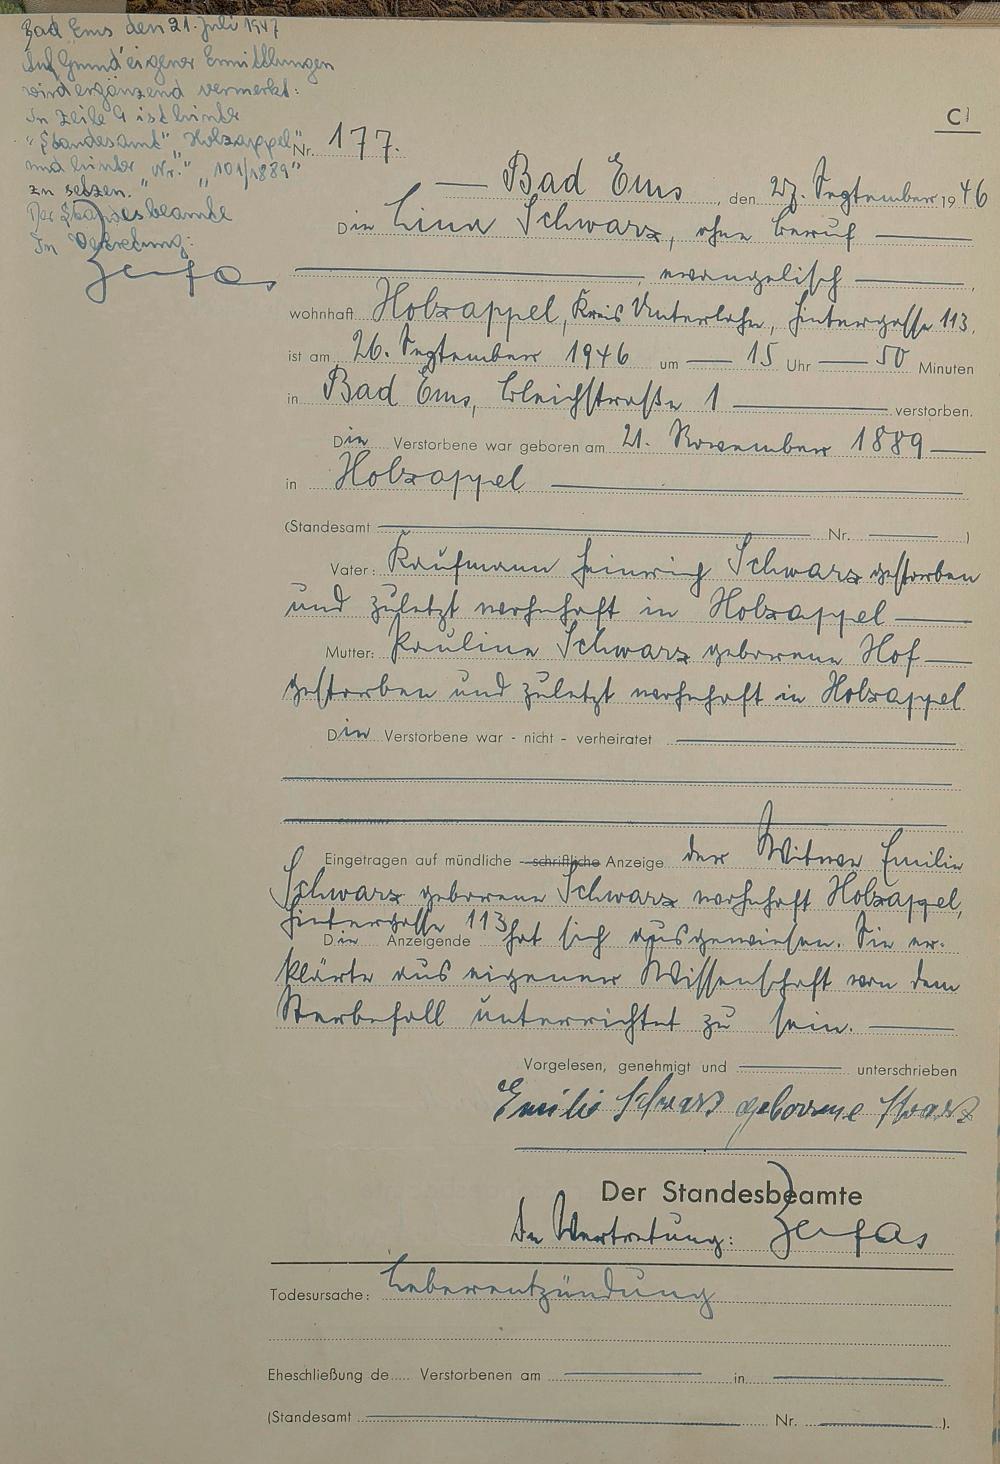 Bad Ems den 21. Juli 1947
Auf Grund eigener Ermittlungen
wird ergänzend vermerkt:
In Zeile 9 ist hinter
"Standesamt" "Holzappel"
und hinter "Nr." "101/1889"
zu setzen.
Der Standesbeamte
In Vertretung:
C1
Nr. 177.
Bad Ems, den 27. September 1946
Die Lina Schwarz, ohne Beruf
evangelisch,
wohnhaft Holzappel, Kreis Unterlahn, Hintergasse 113,
ist am 26. September 1946 um 15 Uhr 50 Minuten
in Bad Ems, Bleichstraße 1 verstorben.
Die Verstorbene war geboren am 21. November 1889
in Holzappel
(Standesamt Nr. )
Vater: Kaufmann Heinrich Schwarz gestorben
und zuletzt wohnhaft in Holzappel
Mutter: Pauline Schwarz geborene Hof
gestorben und zuletzt wohnhaft in Holzappel
Die Verstorbene war - nicht - verheiratet
Eingetragen auf mündliche - schriftliche Anzeige der Witwe Emilie
Schwarz geborene Schwarz wohnhaft Holzappel,
Hintergasse 113
Die Anzeigende hat sich ausgewiesen. Sie er-
klärte aus eigener Wissenschaft von dem
Sterbefall unterrichtet zu sein.
Vorgelesen, genehmigt und unterschrieben
Emilie Schwarz geborene Schwarz
Der Standesbeamte
In Vertretung:
Todesursache: Leberentzündung
Eheschließung de..... Verstorbenen am in
(Standesamt Nr. ).